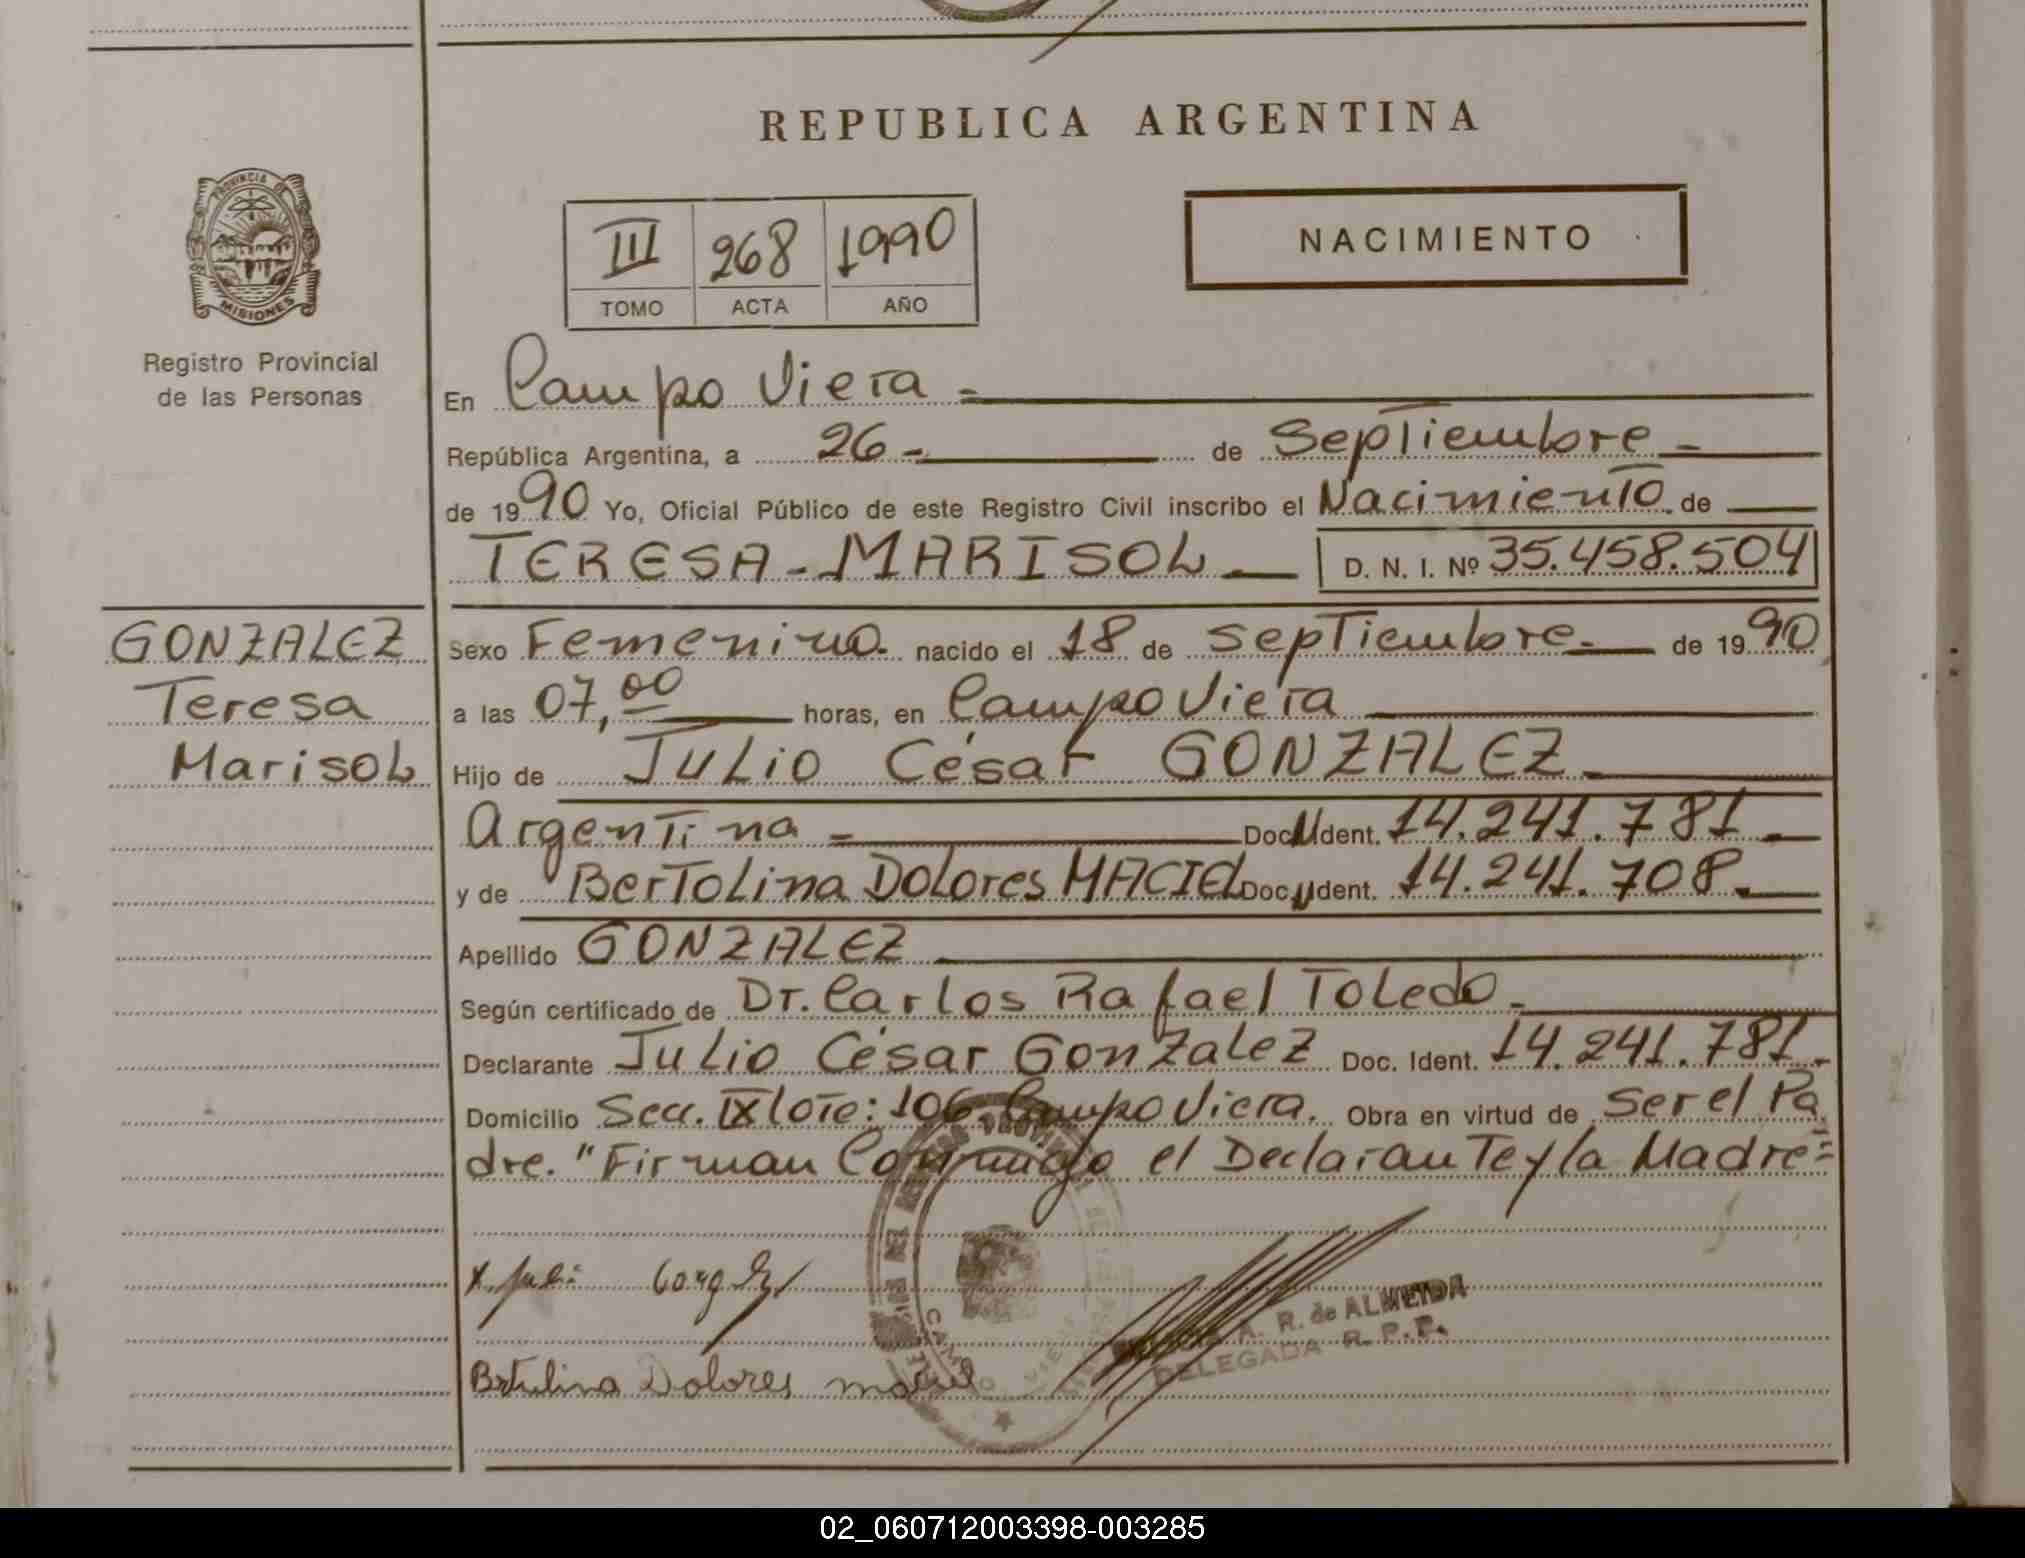 REPUBLICA ARGENTINA
PROVINCIA DE
MISIONES
Registro Provincial
de las Personas
III 268 1990
TOMO ACTA AÑO
NACIMIENTO
En Campo Viera -
República Argentina, a 26 - de Septiembre -
de 1990 Yo, Oficial Público de este Registro Civil inscribo el Nacimiento de
TERESA - MARISOL - D. N. I. Nº 35.458.504
GONZALEZ
Teresa
Marisol
Sexo Femenino nacido el 18 de Septiembre. de 1990
a las 07,00 horas, en Campo Viera
Hijo de Julio César GONZALEZ -
Argentina - Doc. Ident. 14.241.781 -
y de Bertolina Dolores MACIEL Doc. Ident. 14.241.708 -
Apellido GONZALEZ
Según certificado de Dr. Carlos Rafael Toledo -
Declarante Julio César Gonzalez Doc. Ident. 14.241.781 -
Domicilio Secc. IX lote: 106 - Campo Viera. Obra en virtud de Ser el Pa
dre. "Firman Conmigo el Declarante y la Madre"
Dolores
A. R. de ALMEIDA
DELEGADA R. P. P.
02_060712003398-003285